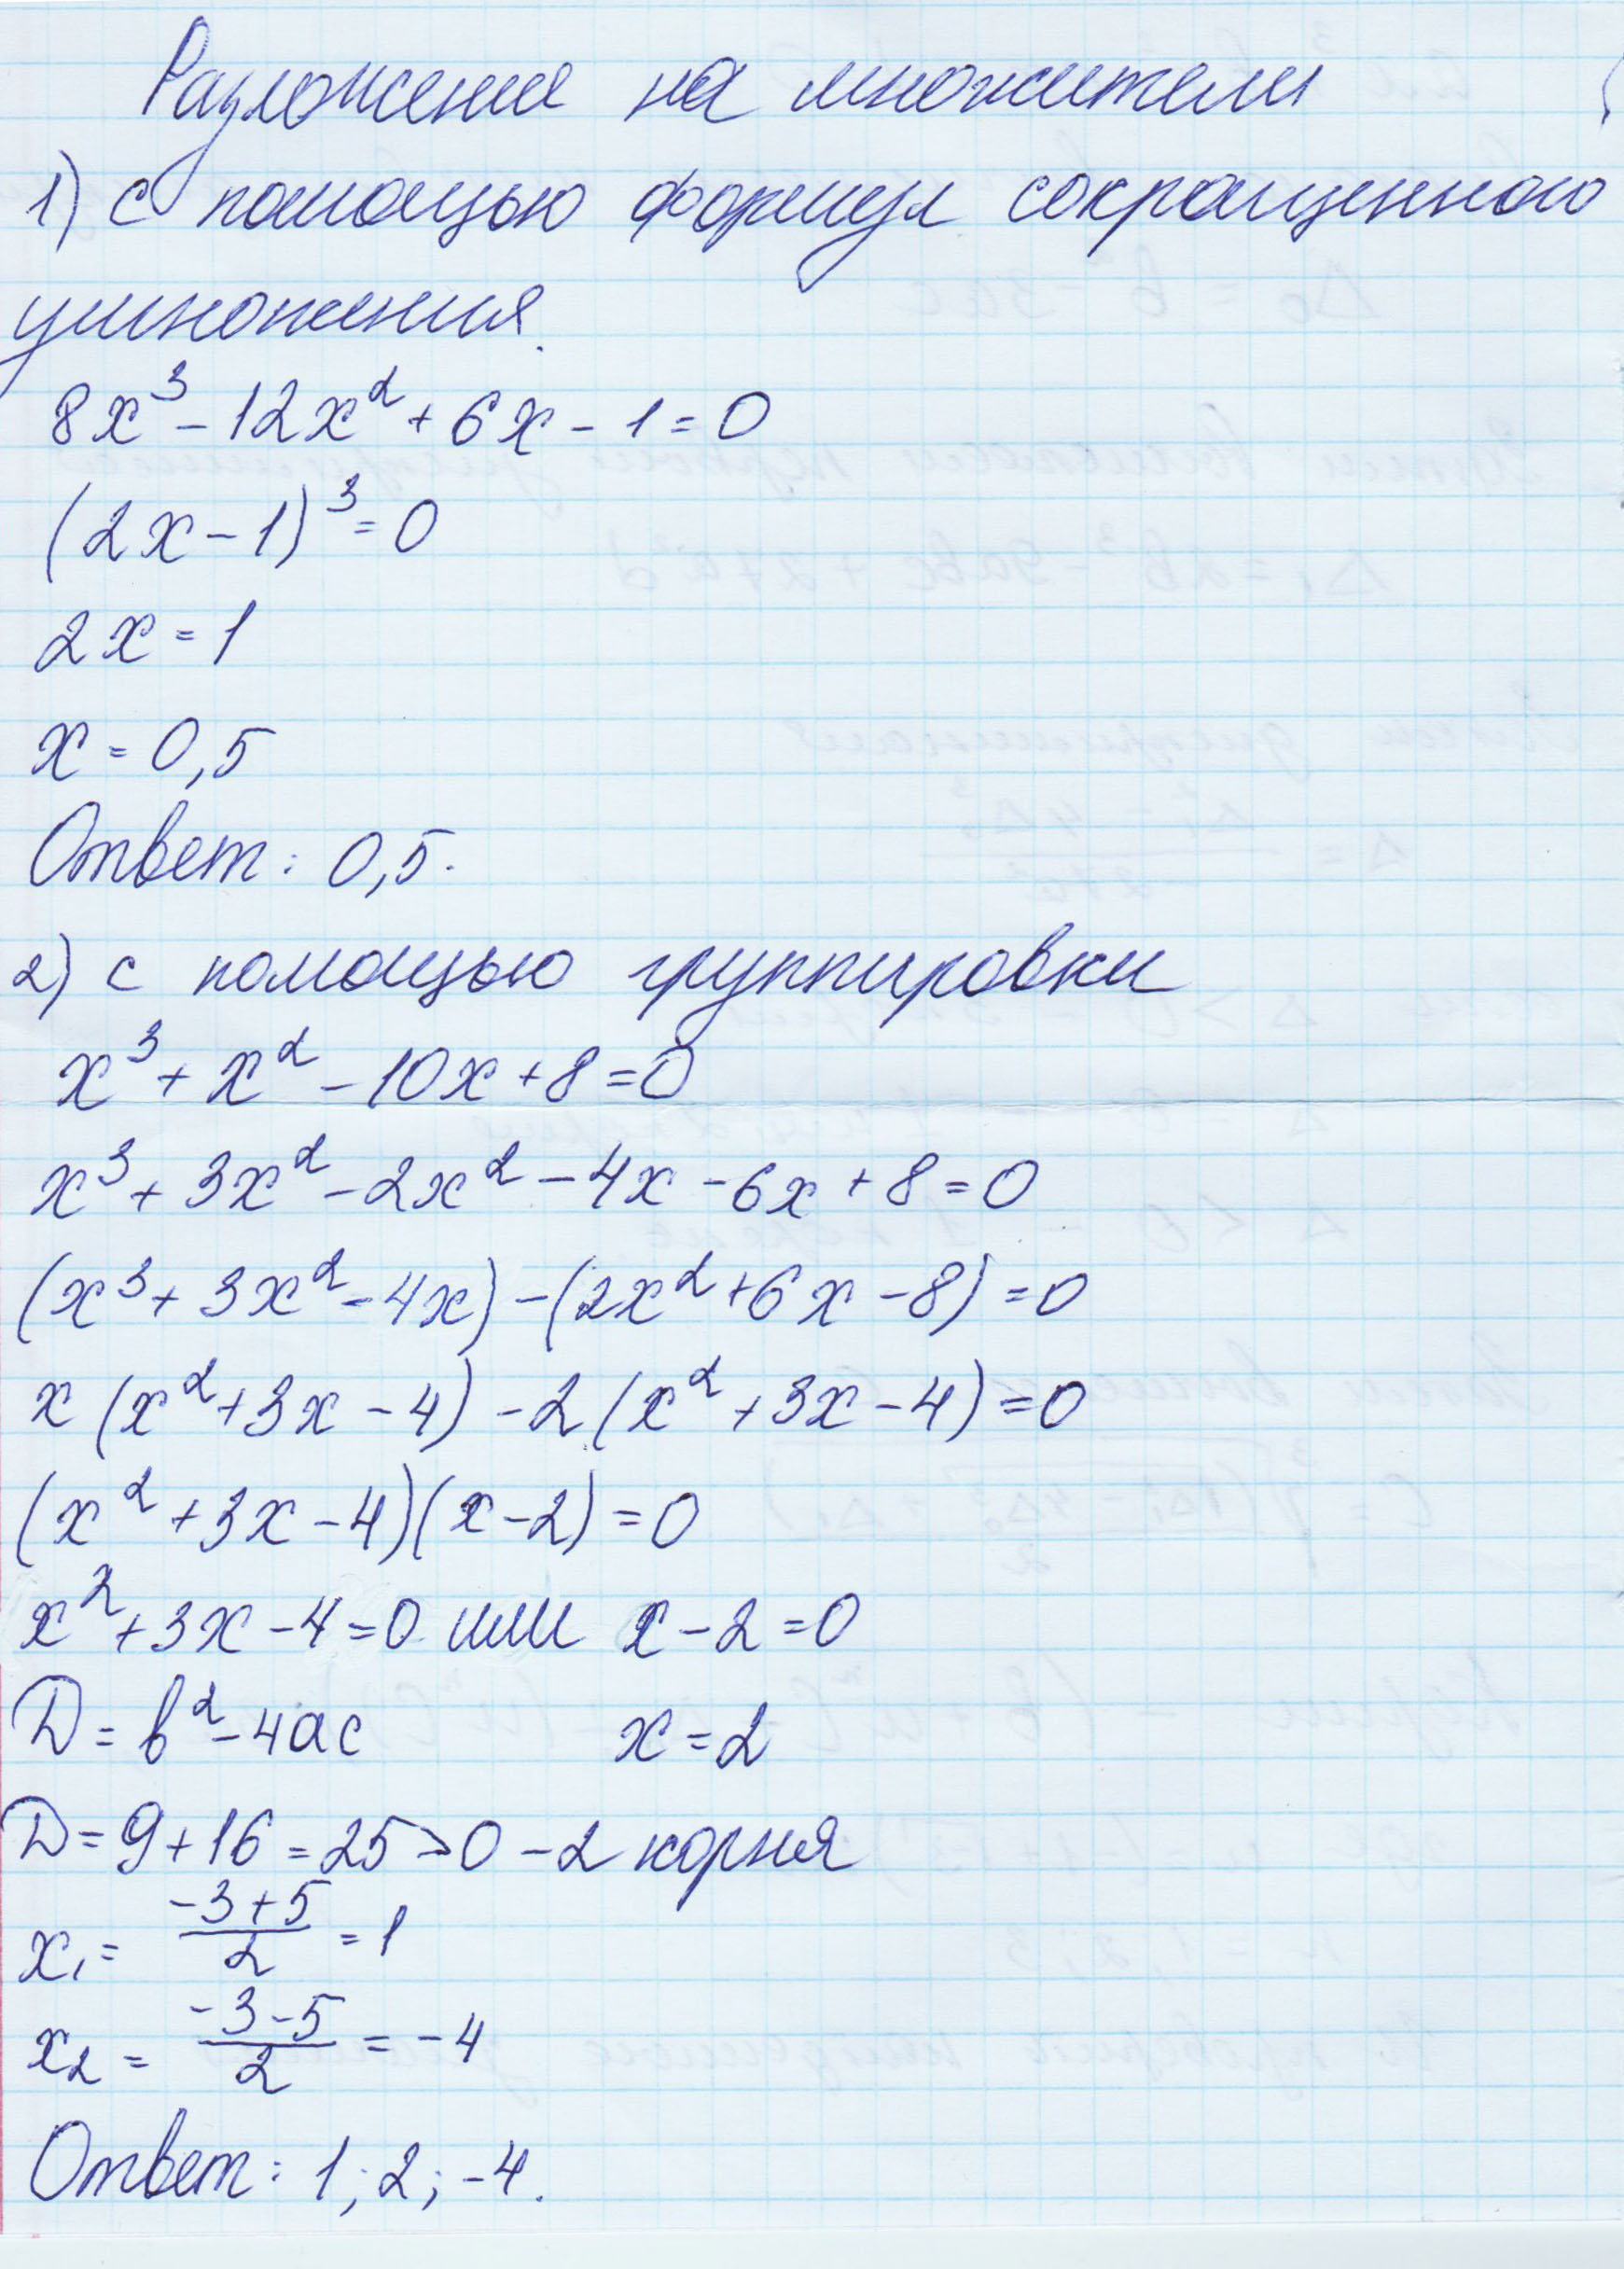 Разложение на множители
1) с помощью формул сокращенного
умножения.
8x³ - 12x² + 6x - 1 = 0
(2x - 1)³ = 0
2x = 1
x = 0,5
Ответ: 0,5.
2) с помощью группировки
x³ + x² - 10x + 8 = 0
x³ + 3x² - 2x² - 4x - 6x + 8 = 0
(x³ + 3x² - 4x) - (2x² + 6x - 8) = 0
x (x² + 3x - 4) - 2 (x² + 3x - 4) = 0
(x² + 3x - 4)(x - 2) = 0
x² + 3x - 4 = 0 или x - 2 = 0
D = b² - 4ac x = 2
D = 9 + 16 = 25 > 0 - 2 корня
x₁ = (-3+5)/2 = 1
x₂ = (-3-5)/2 = -4
Ответ: 1; 2; -4.